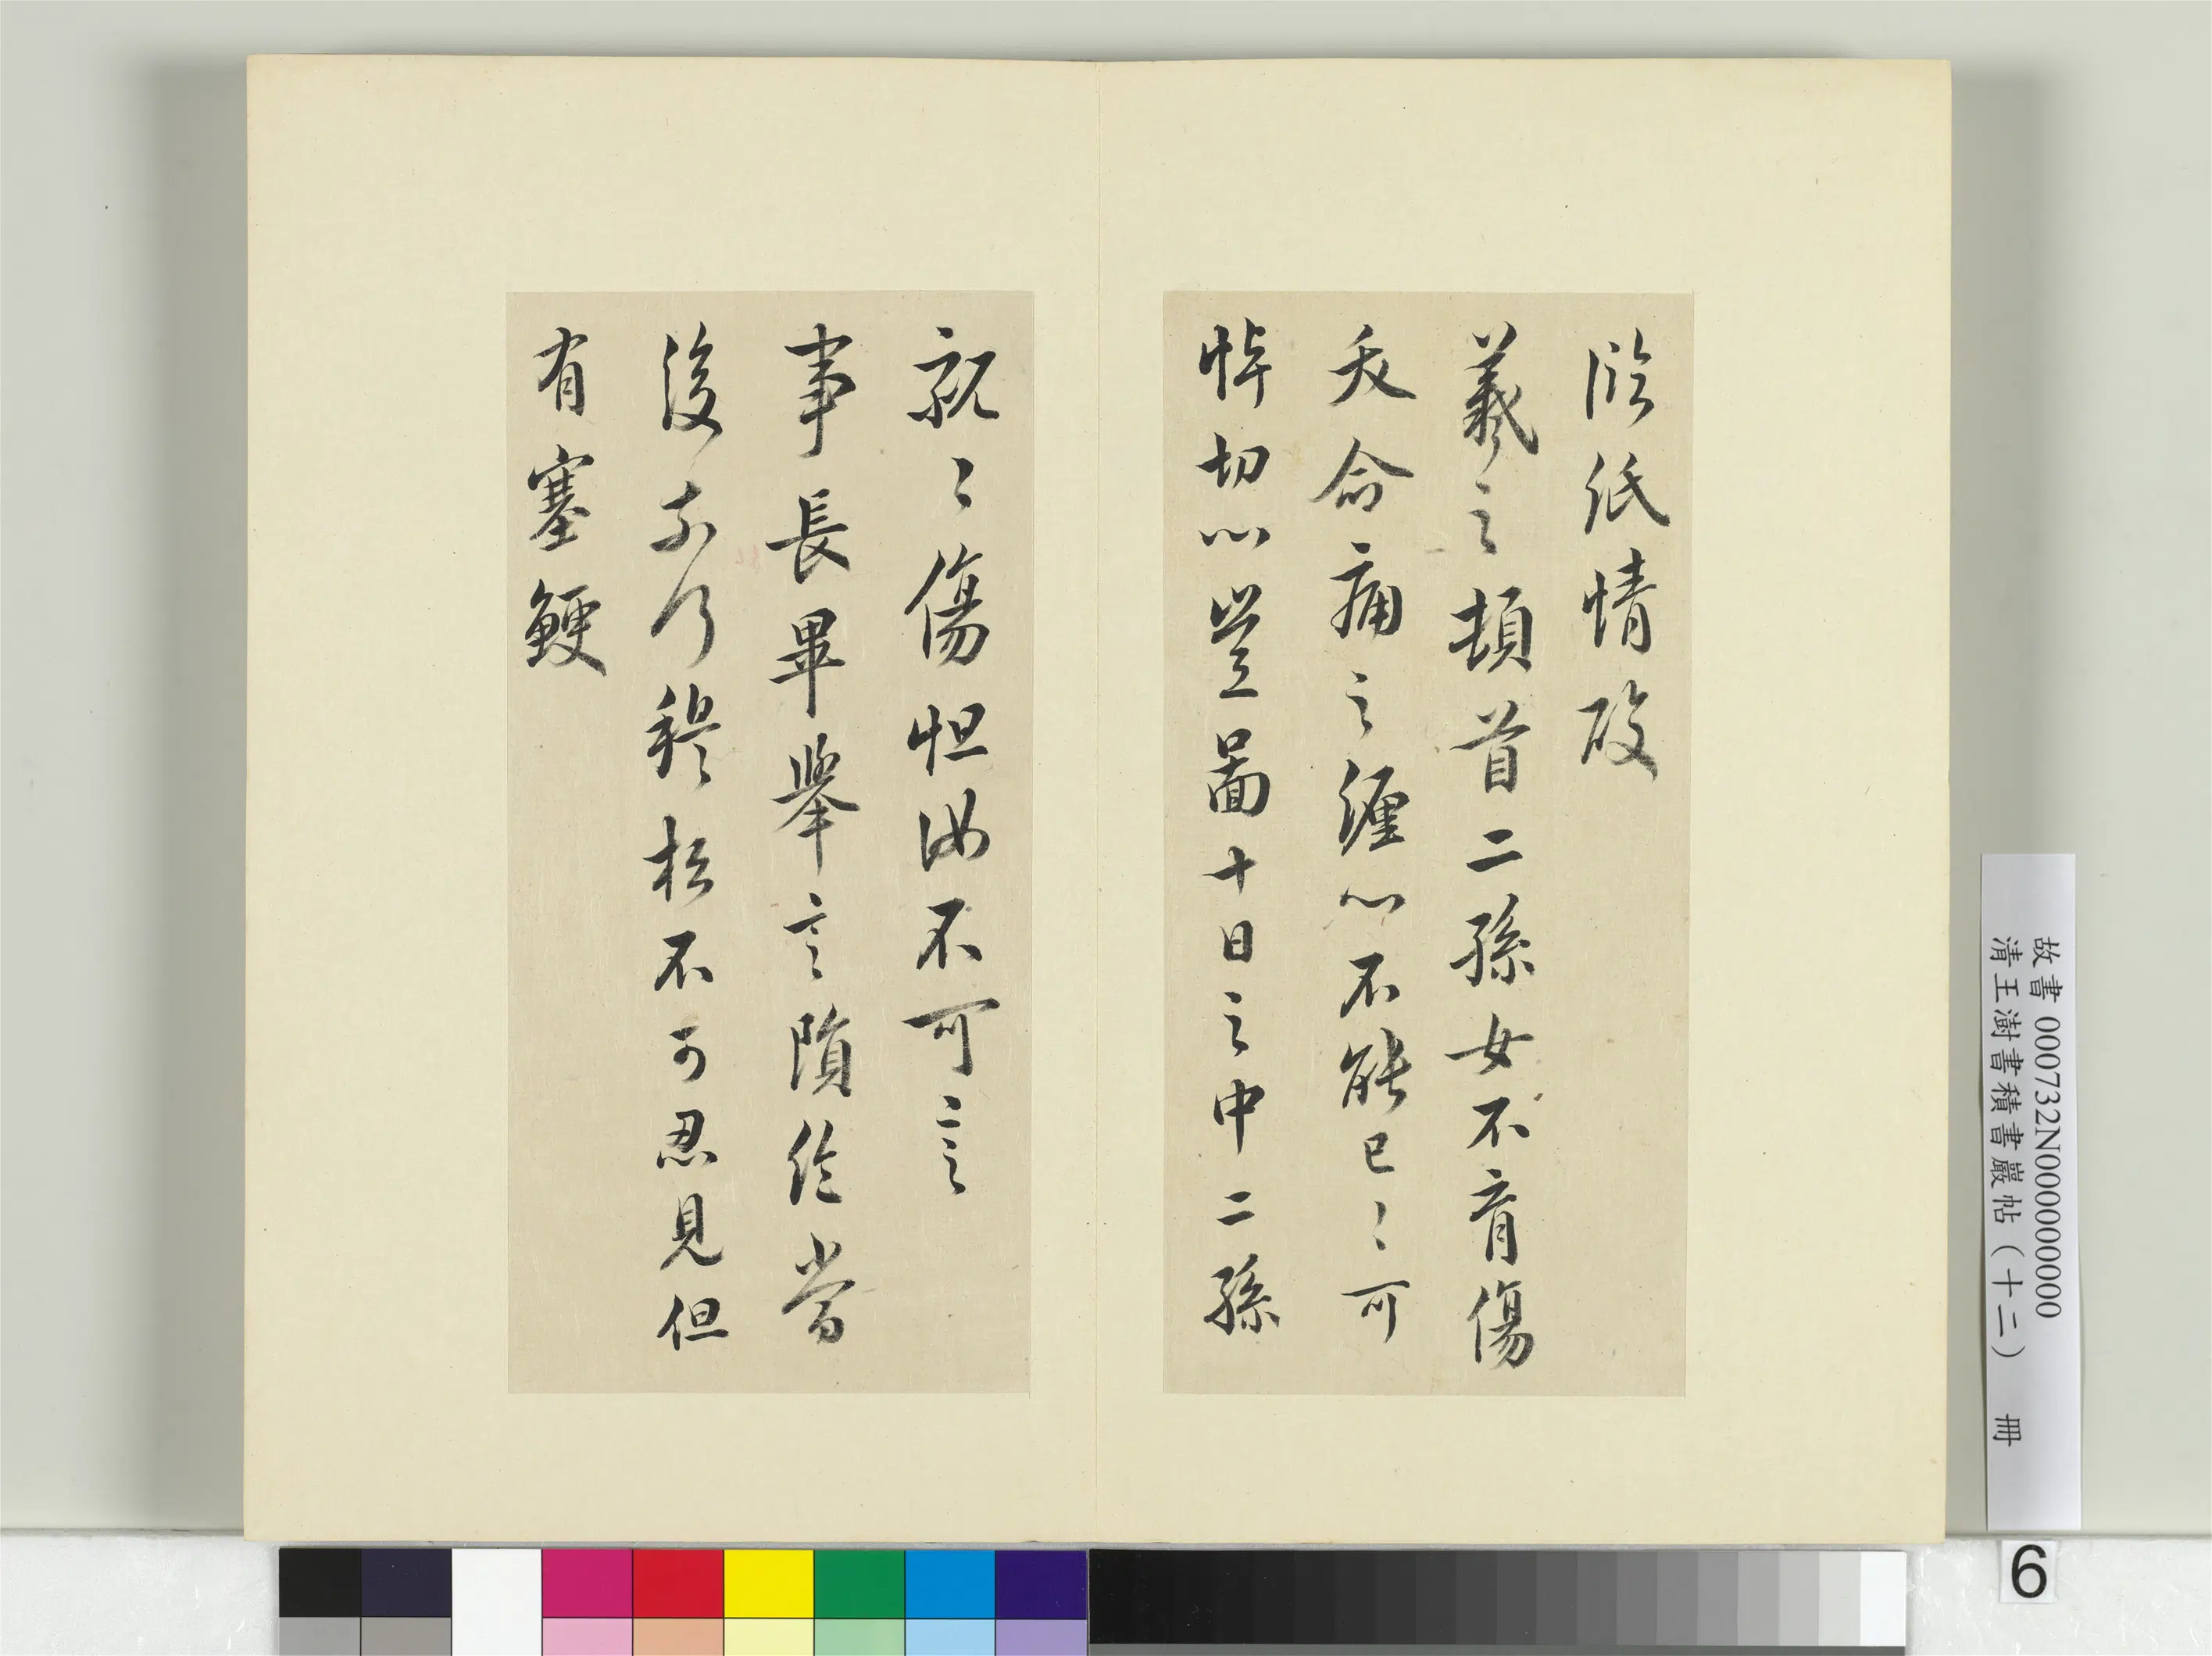 臨紙情破
羲之頓首二孫女不育傷
夭命痛之纏心不能已〻可
悼切心豈圖十日之中二孫
親〻傷怛汝不可言
事長畢舉言隕絕當
復奈何穆松不可忍見但
有塞鯁
故書 000732N000000000
清王澍書積書巖帖（十二） 冊
6